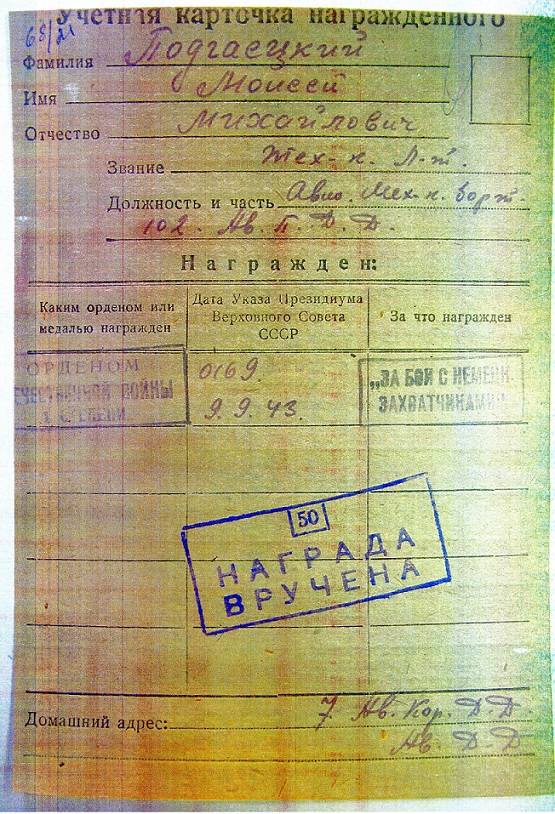 Учетная карточка награжденного
68/21
Фамилия Подгаецкий
Имя Моисей
Отчество Михайлович
Звание тех-к. Л-т.
Должность и часть Авио. Мех-к. борт.
102. Ав. П. Д. Д.
Награжден:
Каким орденом или медалью награжден
Дата Указа Президиума Верховного Совета СССР
За что награжден
ОРДЕНОМ
ЕЧЕСТВЕННОЙ ВОЙНЫ
СТЕПЕНИ
0169.
9.9.43.
„ЗА БОИ С НЕМЕЦК.
ЗАХВАТЧИКАМИ"
50
НАГРАДА
ВРУЧЕНА
Домашний адрес: 7. Ав. Кор. Д Д
Ав. Д-Д